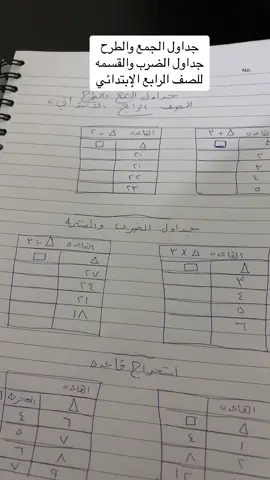 جداول الجمع والطرح
جداول الضرب والقسمه
للصف الرابع الإبتدائي
No:
جداول الجمع والطرح
للصف الرابع الابتدائي
القاعده Δ + ٢
Δ □
٢
٣
٤
٥
القاعده Δ - ٢
Δ □
٢٠
٢١
٢٢
٢٣
جداول الضرب والقسمه
القاعده Δ × ٣
Δ □
٣
٤
٥
٦
القاعده Δ ÷ ٣
Δ □
٢٧
٢٤
٢١
١٨
استخراج قاعده
القاعده
Δ □
١ ٤
٢ ٨
١٢
القاعده
Δ
٦ ٤
٧ ٥
٨ ٦
٩ ٧